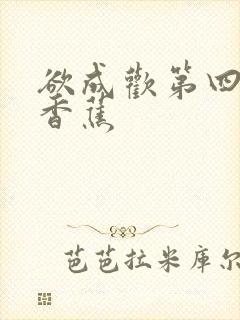 欲成歡第四
香蕉
芭芭拉米庫尔